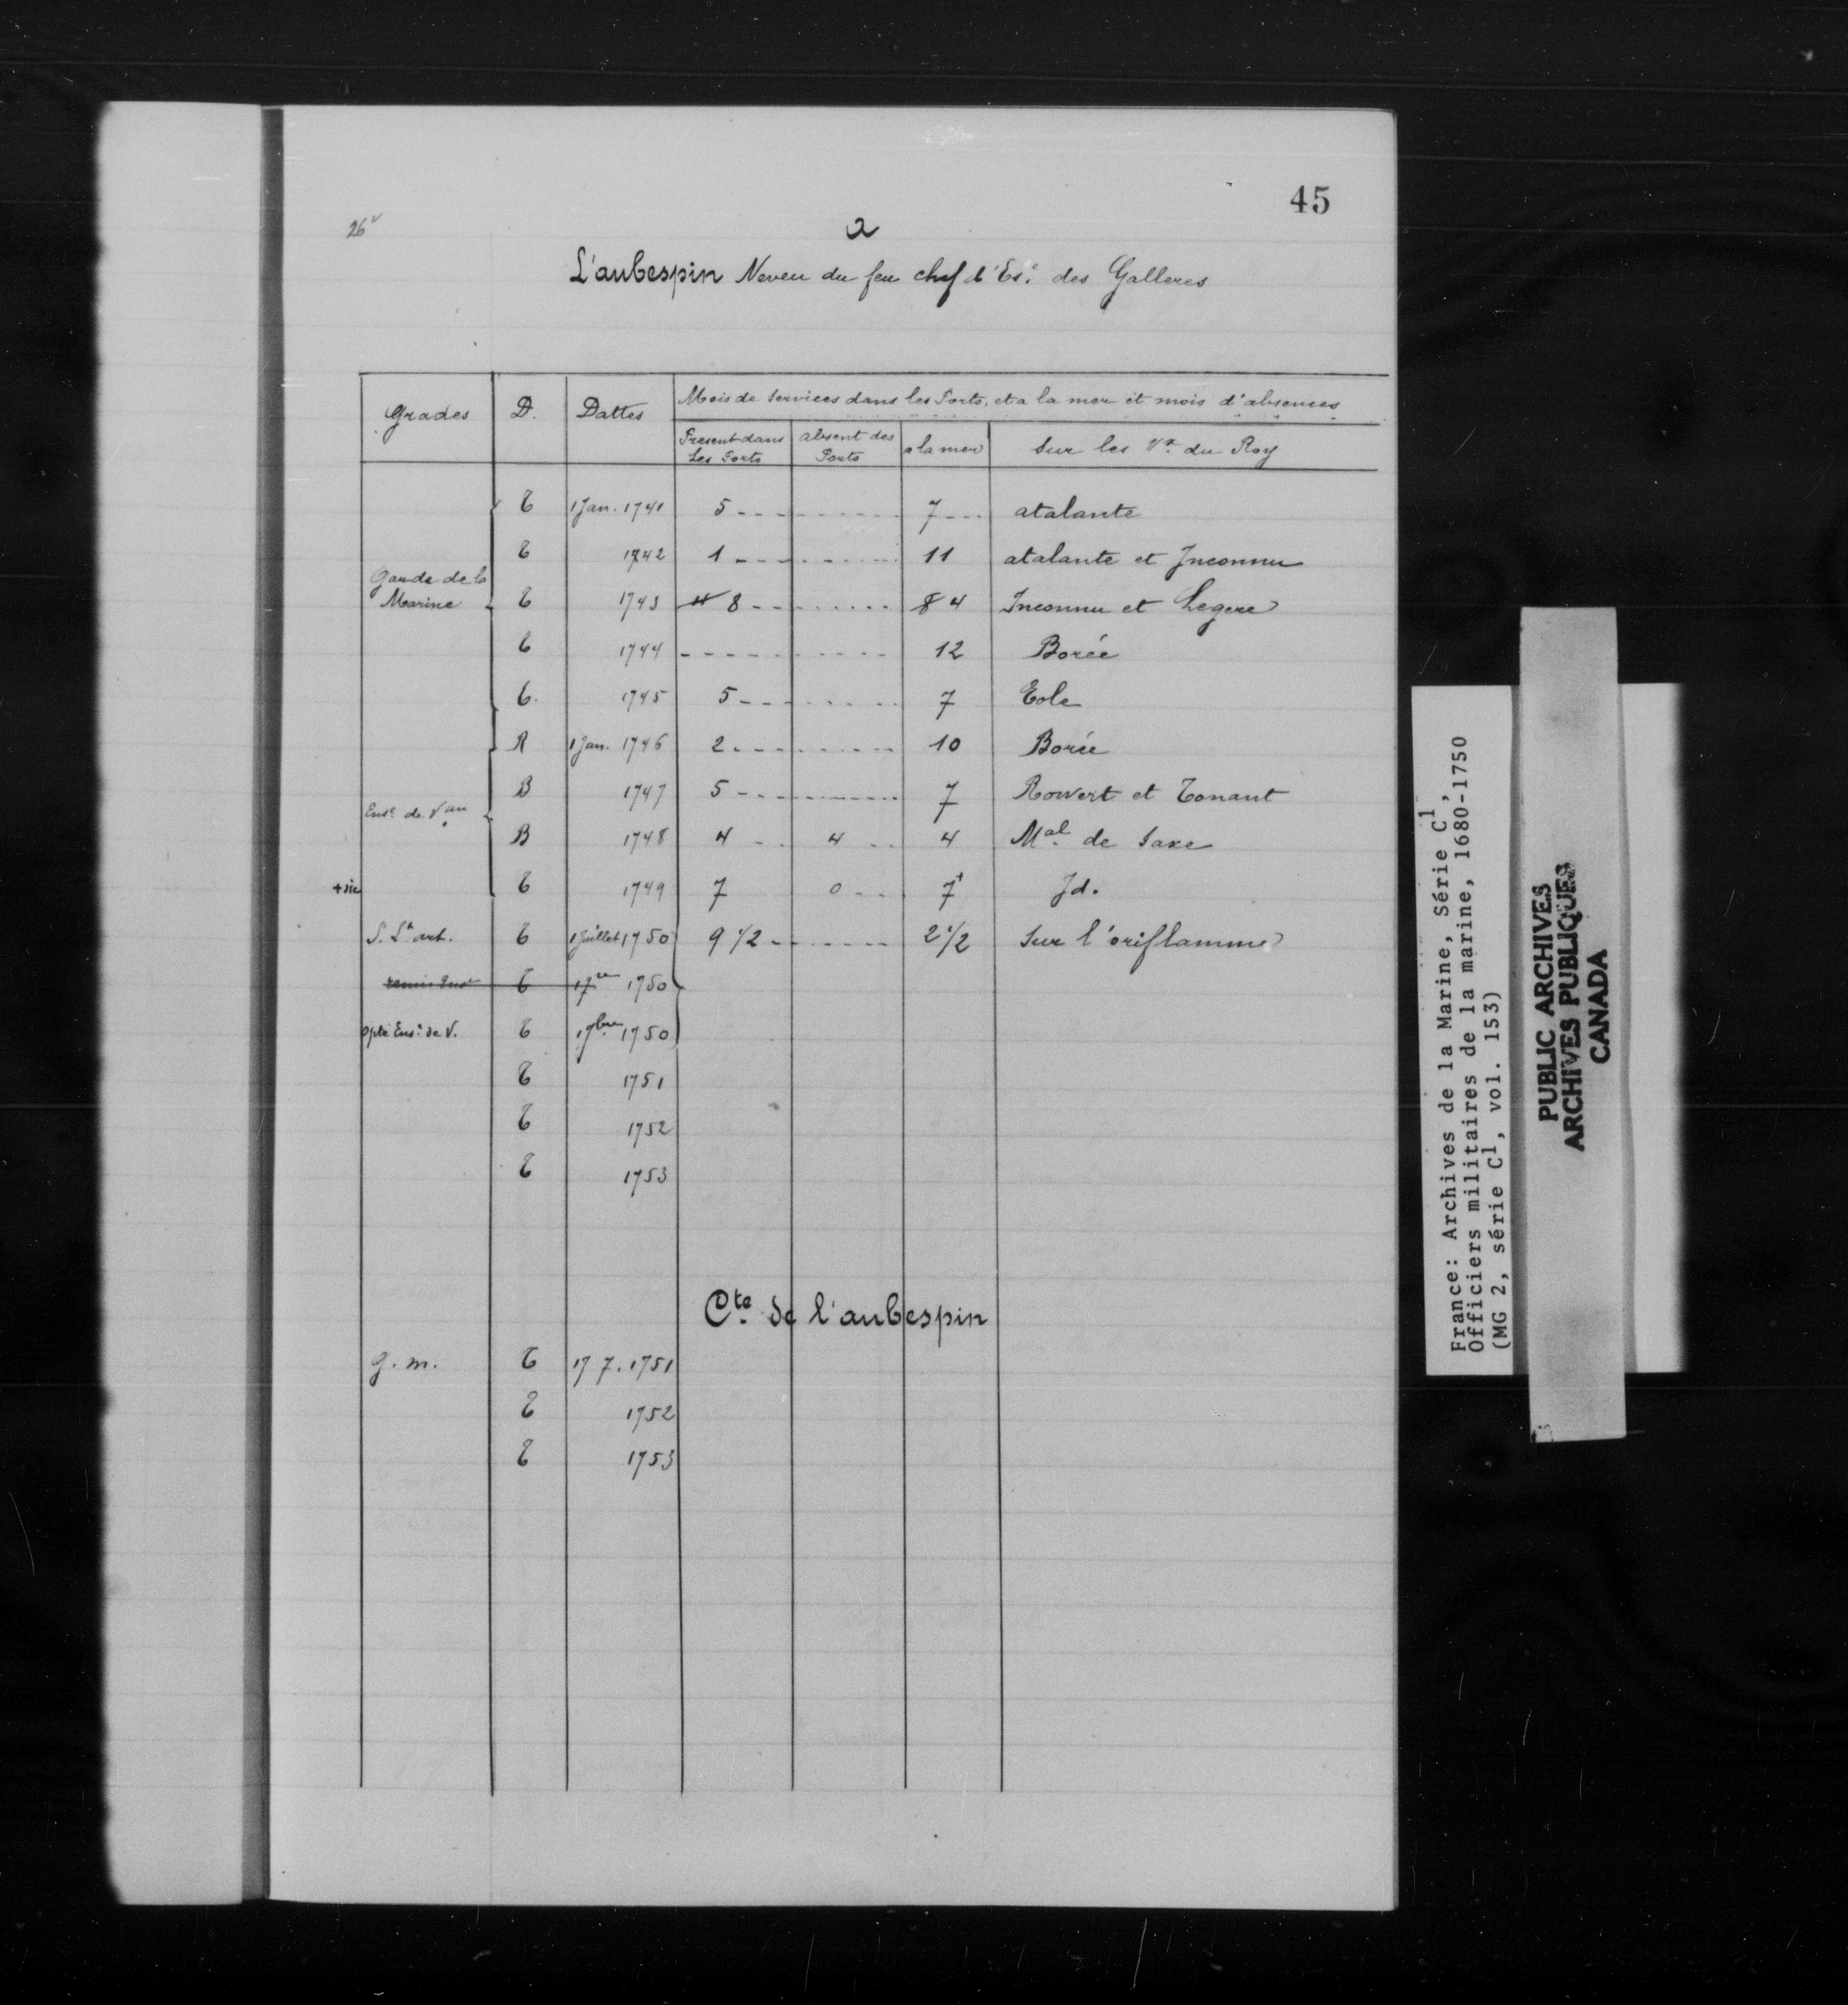 45
26v
a
L'aubespin Neveu du feu chef d'Es.e des Galleres
Grades | D. | Dattes | Mois de Services dans les Ports, et a la mer et mois d'absences
Present dans Les Ports | absent des Ports | a la mer | Sur les Vx du Roy
T | 1 Jan. 1741 | 5 | | 7 | atalante
T | 1742 | 1 | | 11 | atalante et Inconnu
Garde de la Marine | T | 1743 | 4 8 | | 8 4 | Inconnu et Legere
T | 1744 | | | 12 | Borée
T. | 1745 | 5 | | 7 | Eole
R | 1 Jan. 1746 | 2 | | 10 | Borée
B | 1747 | 5 | | 7 | et Tonant
Ense de Vau
B | 1748 | 4 | 4 | 4 | Mal de Saxe
+sic | T | 1749 | 7 | 0 | 7+ | Jd.
S. Lt art. | T | 1 Juillet 1750 | 9 1/2 | | 2 1/2 | Sur l'oriflamme
T | 1750
Ense de V. | T | 1750
T | 1751
T | 1752
T | 1753
Cte de l'aubespin
g. m. | T | 17 7. 1751
T | 1752
T | 1753
France: Archives de la Marine, Série C1,
Officiers militaires de la marine, 1680-1750
(MG 2, série C1, vol. 153)
PUBLIC ARCHIVES
ARCHIVES PUBLIQUES
CANADA